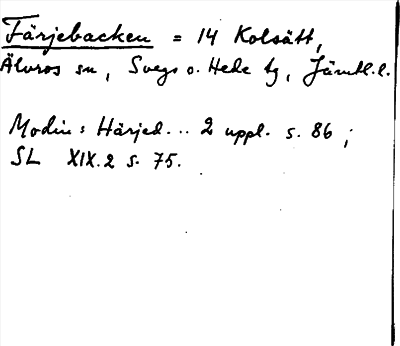 Färjebacken = 14 Kolsätt,
Älvros sn, Svegs o. Hede tg, Jämtl. l.
Modin: Härjed... 2 uppl. s. 86;
SL XIX.2 s. 75.